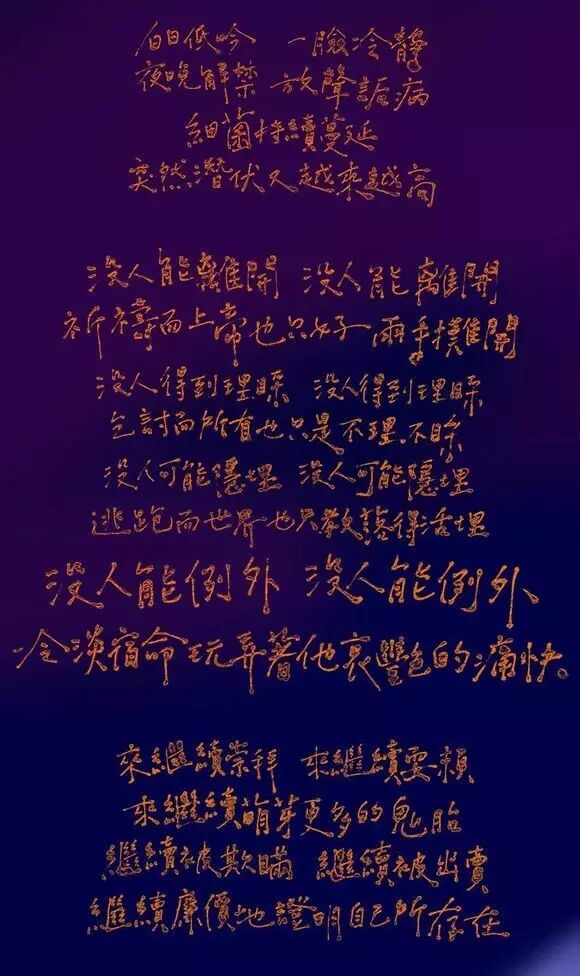 白日低吟 一臉冷靜
夜晚解禁 放聲詬病
細菌持續蔓延
突然潛伏又越來越高
沒人能離開 沒人能離開
祈禱而上帝也只好 兩手攤開
沒人得到理睬 沒人得到理睬
乞討而所有也只是不理不睬
沒人可能隱埋 沒人可能隱埋
逃跑而世界也只教落得活埋
沒人能例外 沒人能例外
冷淡宿命玩弄著他哀豔的痛快
來繼續崇拜 來繼續耍賴
來繼續萌芽更多的鬼胎
繼續被欺瞞 繼續被出賣
繼續廉價地證明自己所存在